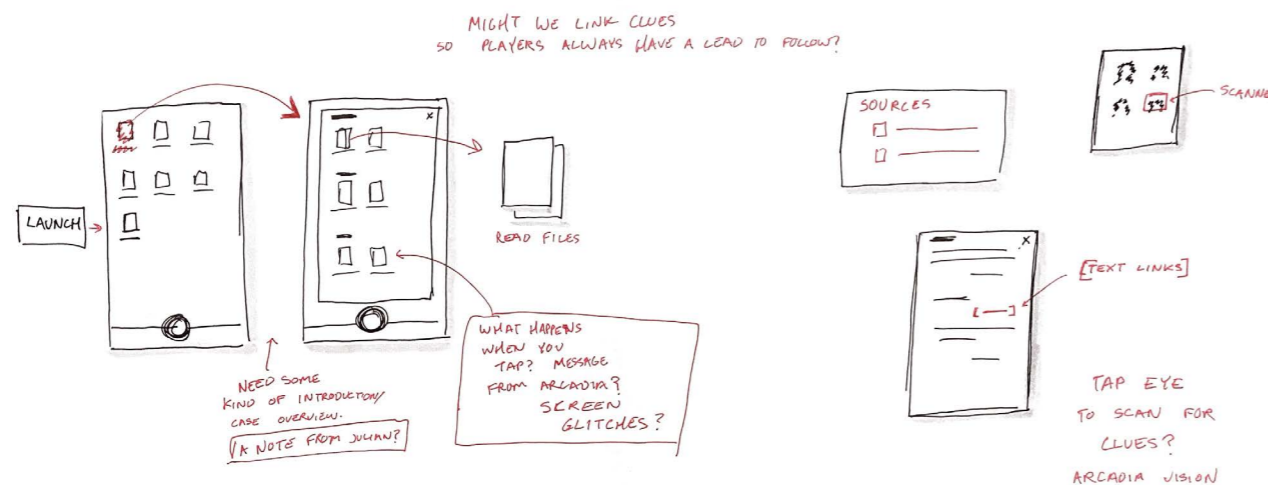 MIGHT WE LINK CLUES
SO PLAYERS ALWAYS HAVE A LEAD TO FOLLOW?
LAUNCH
READ FILES
NEED SOME
KIND OF INTRODUCTION/
CASE OVERVIEW.
A NOTE FROM JULIAN?
WHAT HAPPENS
WHEN YOU
TAP? MESSAGE
FROM ARCADIA?
SCREEN
GLITCHES?
SOURCES
SCANNE
[TEXT LINKS]
TAP EYE
TO SCAN FOR
CLUES?
ARCADIA VISION